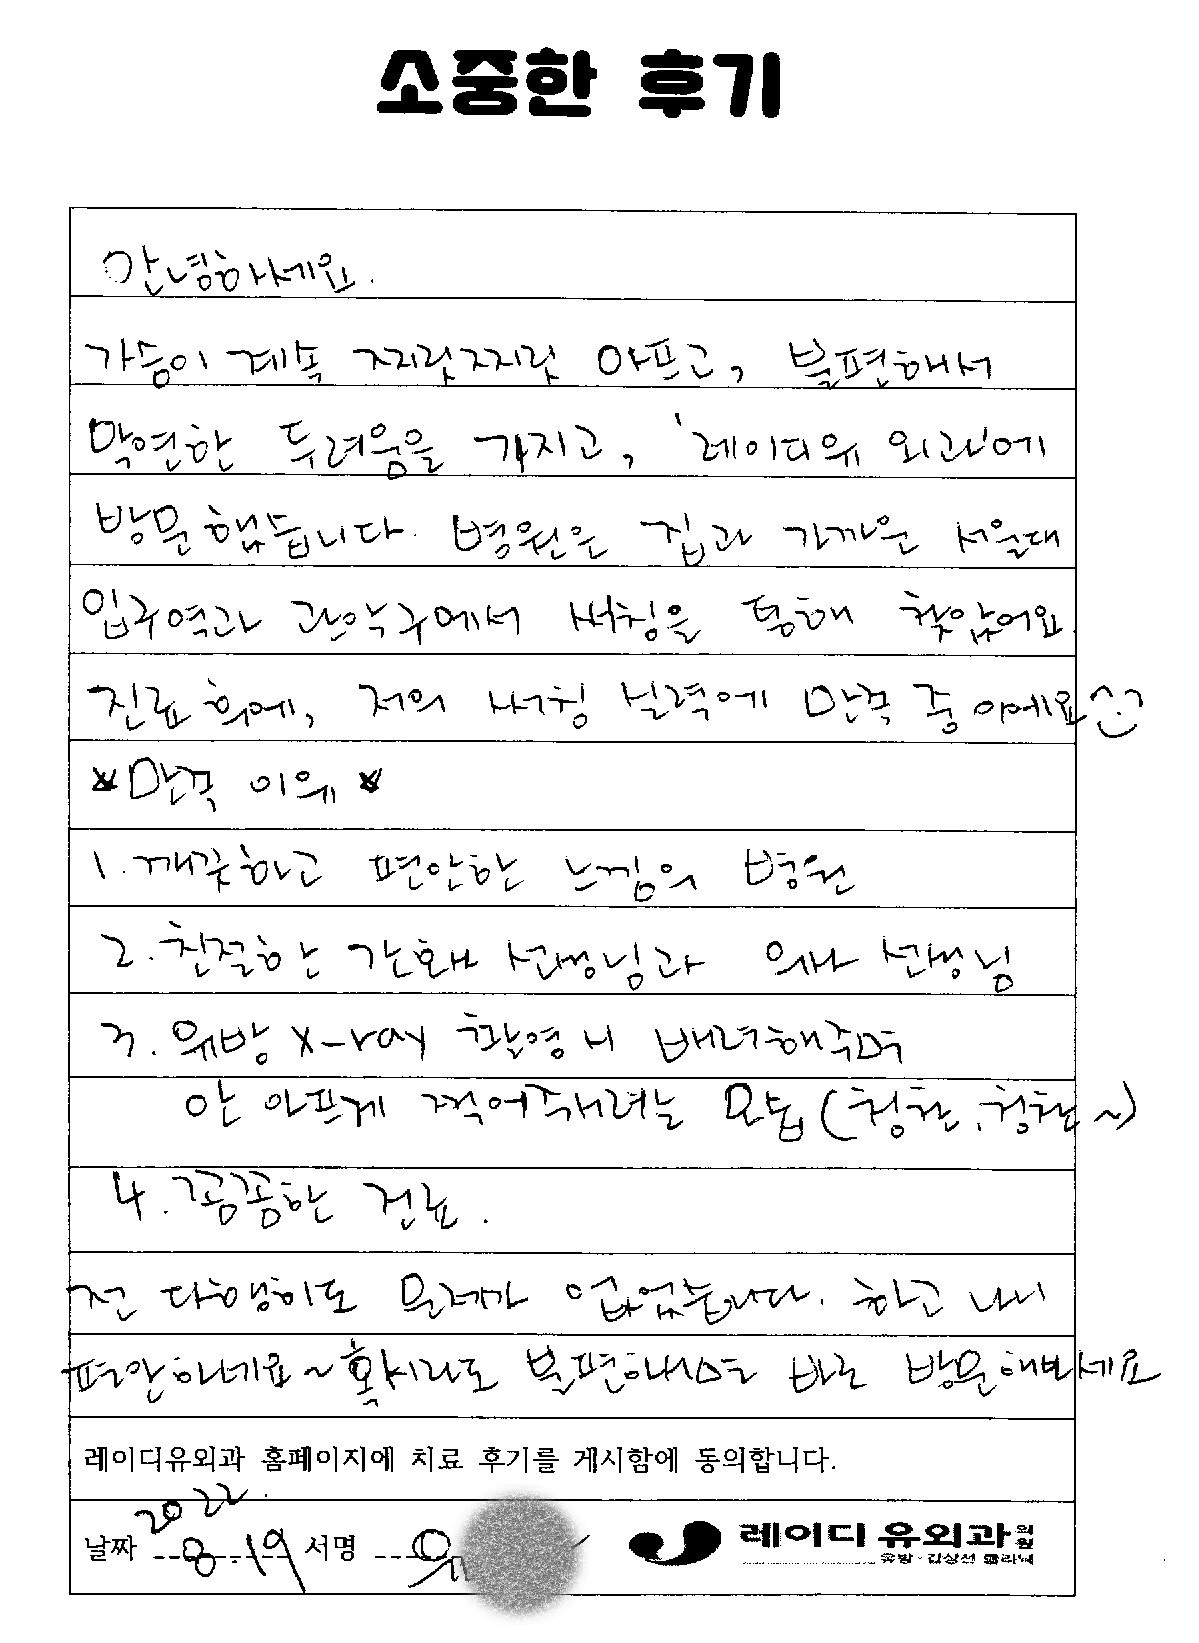 소중한 후기
안녕하세요.
가슴이 계속 찌릿찌릿 아프고, 불편해서
막연한 두려움을 가지고, '레이디유 외과'에
방문했습니다. 병원은 집과 가까운 서울대
입구역과 관악구에서 써칭을 통해 찾았어요
진료 후에, 저의 써칭 실력에 만족 중이에요^:)
*만족 이유*
1. 깨끗하고 편안한 느낌의 병원
2. 친절한 간호사 선생님과 의사 선생님
3. 유방 X-ray 촬영 시 배려해주며
안 아프게 찍어주려는 모습 (칭찬, 칭찬~)
4. 꼼꼼한 진료.
전 다행히도 문제가 없었습니다. 하고 나니
편안하네요~ 혹시라도 불편하시면 바로 방문해보세요
레이디유외과 홈페이지에 치료 후기를 게시함에 동의합니다.
날짜 2022. 8.19 서명 유
레이디유외과의원
유방·갑상선 클리닉